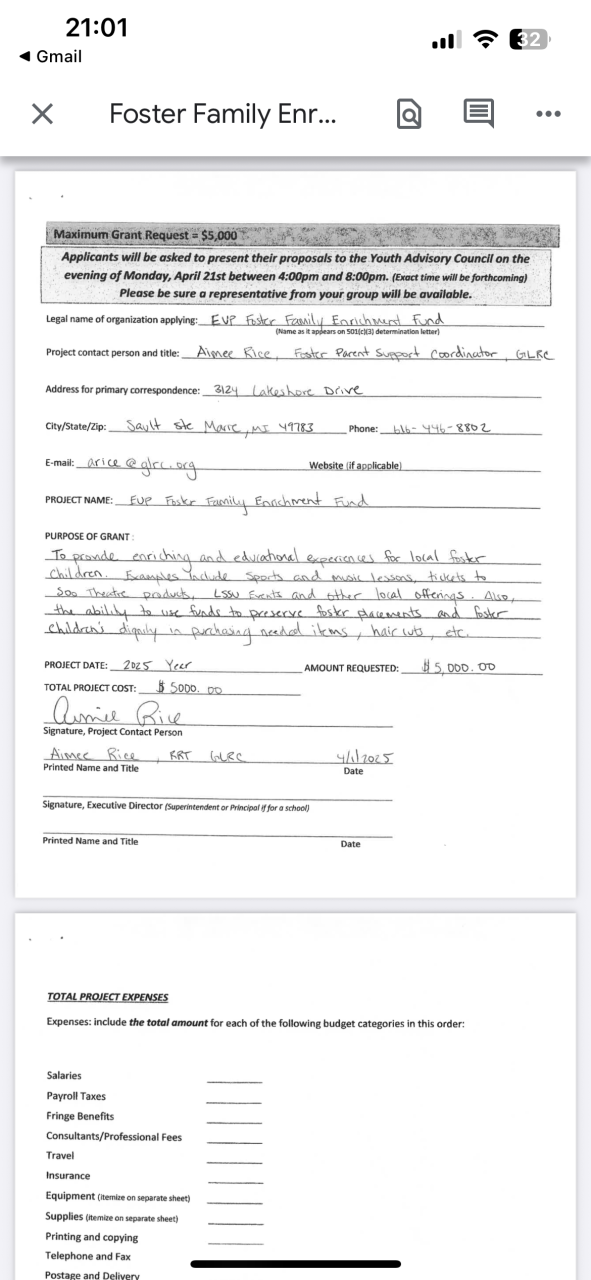 21:01
32
◄ Gmail
Foster Family Enr...
Maximum Grant Request = $5,000
Applicants will be asked to present their proposals to the Youth Advisory Council on the
evening of Monday, April 21st between 4:00pm and 8:00pm. (Exact time will be forthcoming)
Please be sure a representative from your group will be available.
Legal name of organization applying: EUP Foster Family Enrichment Fund
(Name as it appears on 501(c)(3) determination letter)
Project contact person and title: Aimee Rice, Foster Parent Support Coordinator, GLRC
Address for primary correspondence: 3124 Lakeshore Drive
City/State/Zip: Sault Ste Marie, MI 49783 Phone: 616-446-8802
E-mail: arice@glrc.org Website (if applicable)
PROJECT NAME: EUP Foster Family Enrichment Fund
PURPOSE OF GRANT:
To provide enriching and educational experiences for local foster
children. Examples include sports and music lessons, tickets to
Soo Theatre products, LSSU Events and other local offerings. Also,
the ability to use funds to preserve foster placements and foster
children's dignity in purchasing needed items, hair cuts, etc.
PROJECT DATE: 2025 Year AMOUNT REQUESTED: $5,000.00
TOTAL PROJECT COST: $5000.00
Aimee Rice
Signature, Project Contact Person
Aimee Rice, RRT GLRC 4/1/2025
Printed Name and Title Date
Signature, Executive Director (Superintendent or Principal if for a school)
Printed Name and Title Date
TOTAL PROJECT EXPENSES
Expenses: include the total amount for each of the following budget categories in this order:
Salaries
Payroll Taxes
Fringe Benefits
Consultants/Professional Fees
Travel
Insurance
Equipment (itemize on separate sheet)
Supplies (itemize on separate sheet)
Printing and copying
Telephone and Fax
Postage and Delivery